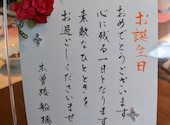 お誕生日
おめでとうございます
心に残る一日となりますよう
素敵なひとときを
お過ごしくださいませ
木曽路 船橋